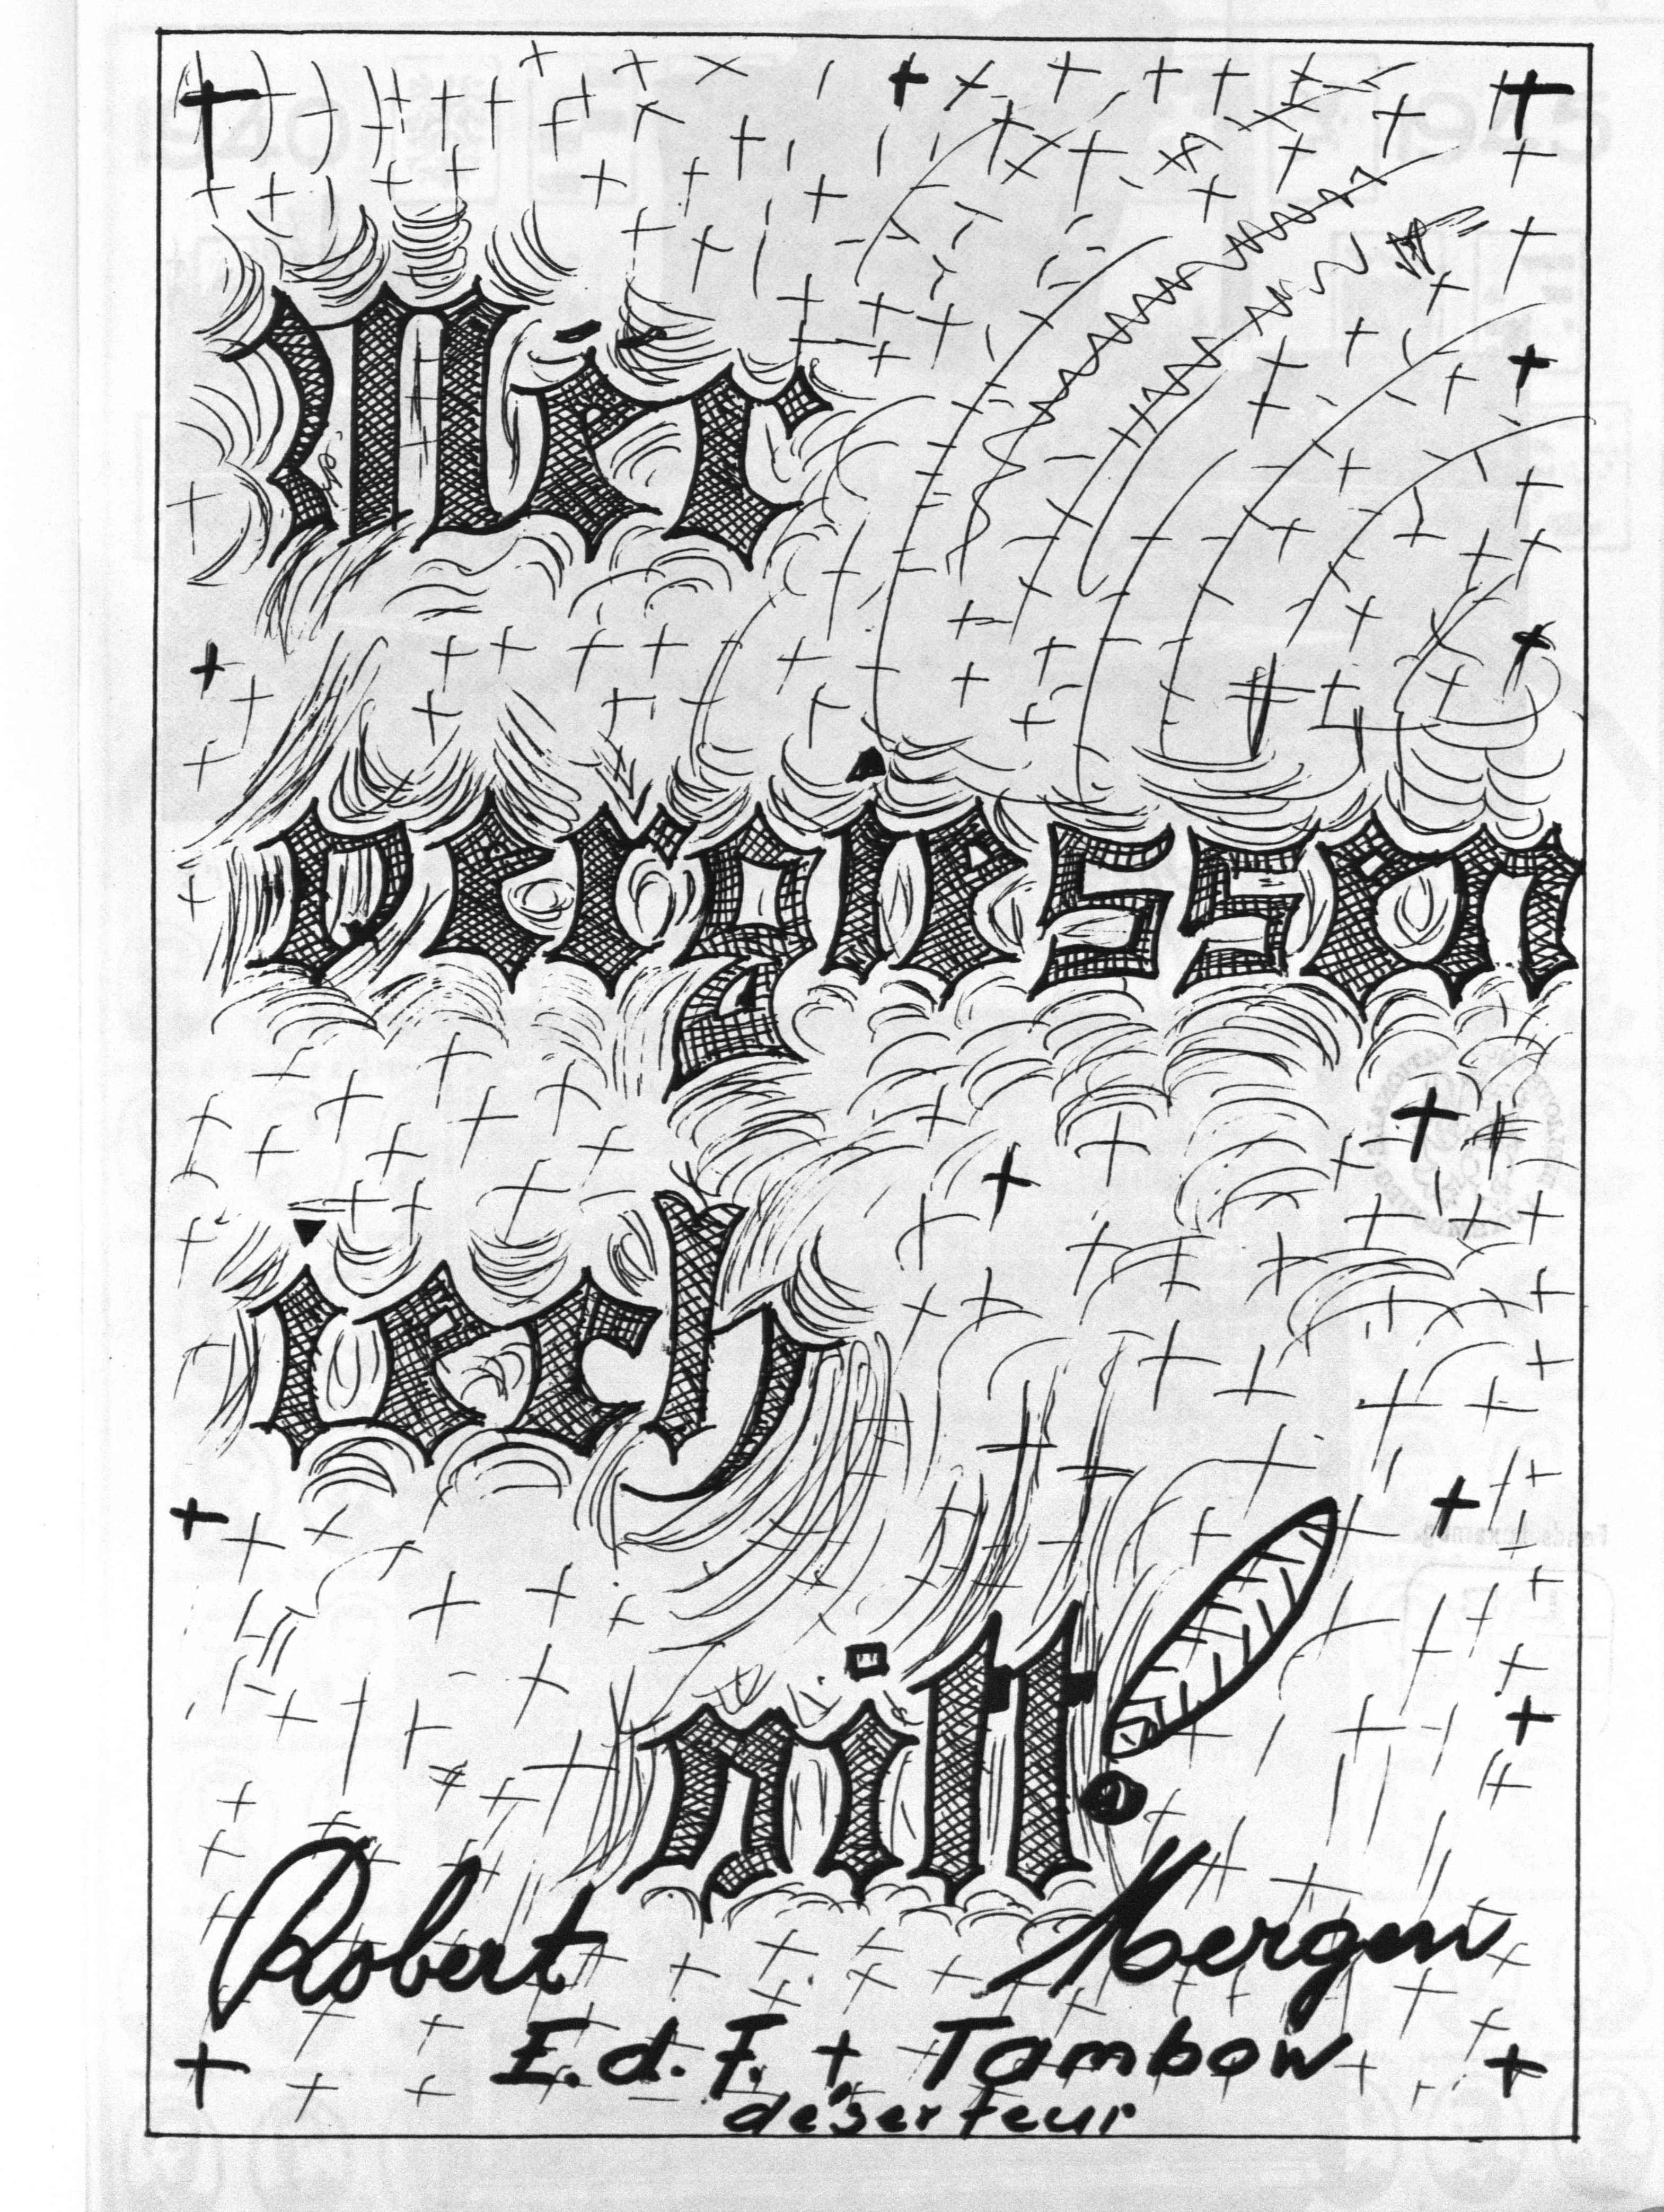 Mër
vergiessen
iech
nitt!
Robert Mergen
E.d.F. + Tambow
déserteur